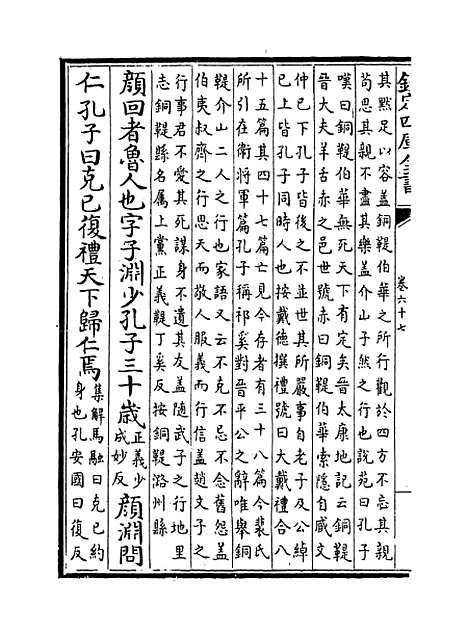 欽定四庫全書
卷六十七
其黙足以容盖銅鞮伯華之所行觀於四方不忘其親
苟思其親不盡其樂盖介山子然之行也說苑曰孔子
嘆曰銅鞮伯華無死天下有定矣晉太康地記云銅鞮
晉大夫羊舌赤之邑世號赤曰銅鞮伯華索隱自臧文
仲已下孔子皆後之不並世其所嚴事自老子及公綽
已上皆孔子同時人也按戴德撰禮號曰大戴禮合八
十五篇其四十七篇亡見今存者有三十八篇今裴氏
所引在衛將軍篇孔子稱祁奚對晉平公之辭唯舉銅
鞮介山二人之行也家語又云不克不忌不念舊怨盖
伯夷叔齊之行思天而敬人服義而行信盖趙文子之
行事君不愛其死謀身不遺其友盖随武子之行地里
志銅鞮縣名属上黨正義鞮丁奚反按銅鞮潞州縣
顔回者魯人也字子淵少孔子三十歲
正義少
成妙反
顔淵問
仁孔子曰克已復禮天下歸仁焉
集解馬融曰克已約
身也孔安國曰復反